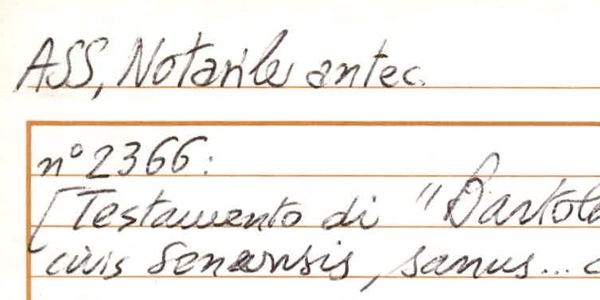 ASS, Notarile antec.
n° 2366:
[Testamento di "Bartol
civis Senensis, sanus...